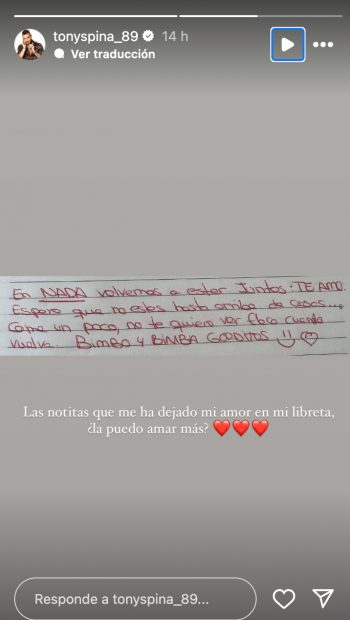 tonyspina_89 14 h
Ver traducción
En NADA volvemos a estar Juntos. TE AMO.
Espero que no estes hasta arriba de cosas...
Come un poco, no te quiero ver flaco cuando
vuelva. BIMBO Y BIMBA GORDITOS
Las notitas que me ha dejado mi amor en mi libreta,
¿la puedo amar más? ❤️❤️❤️
Responde a tonyspina_89...